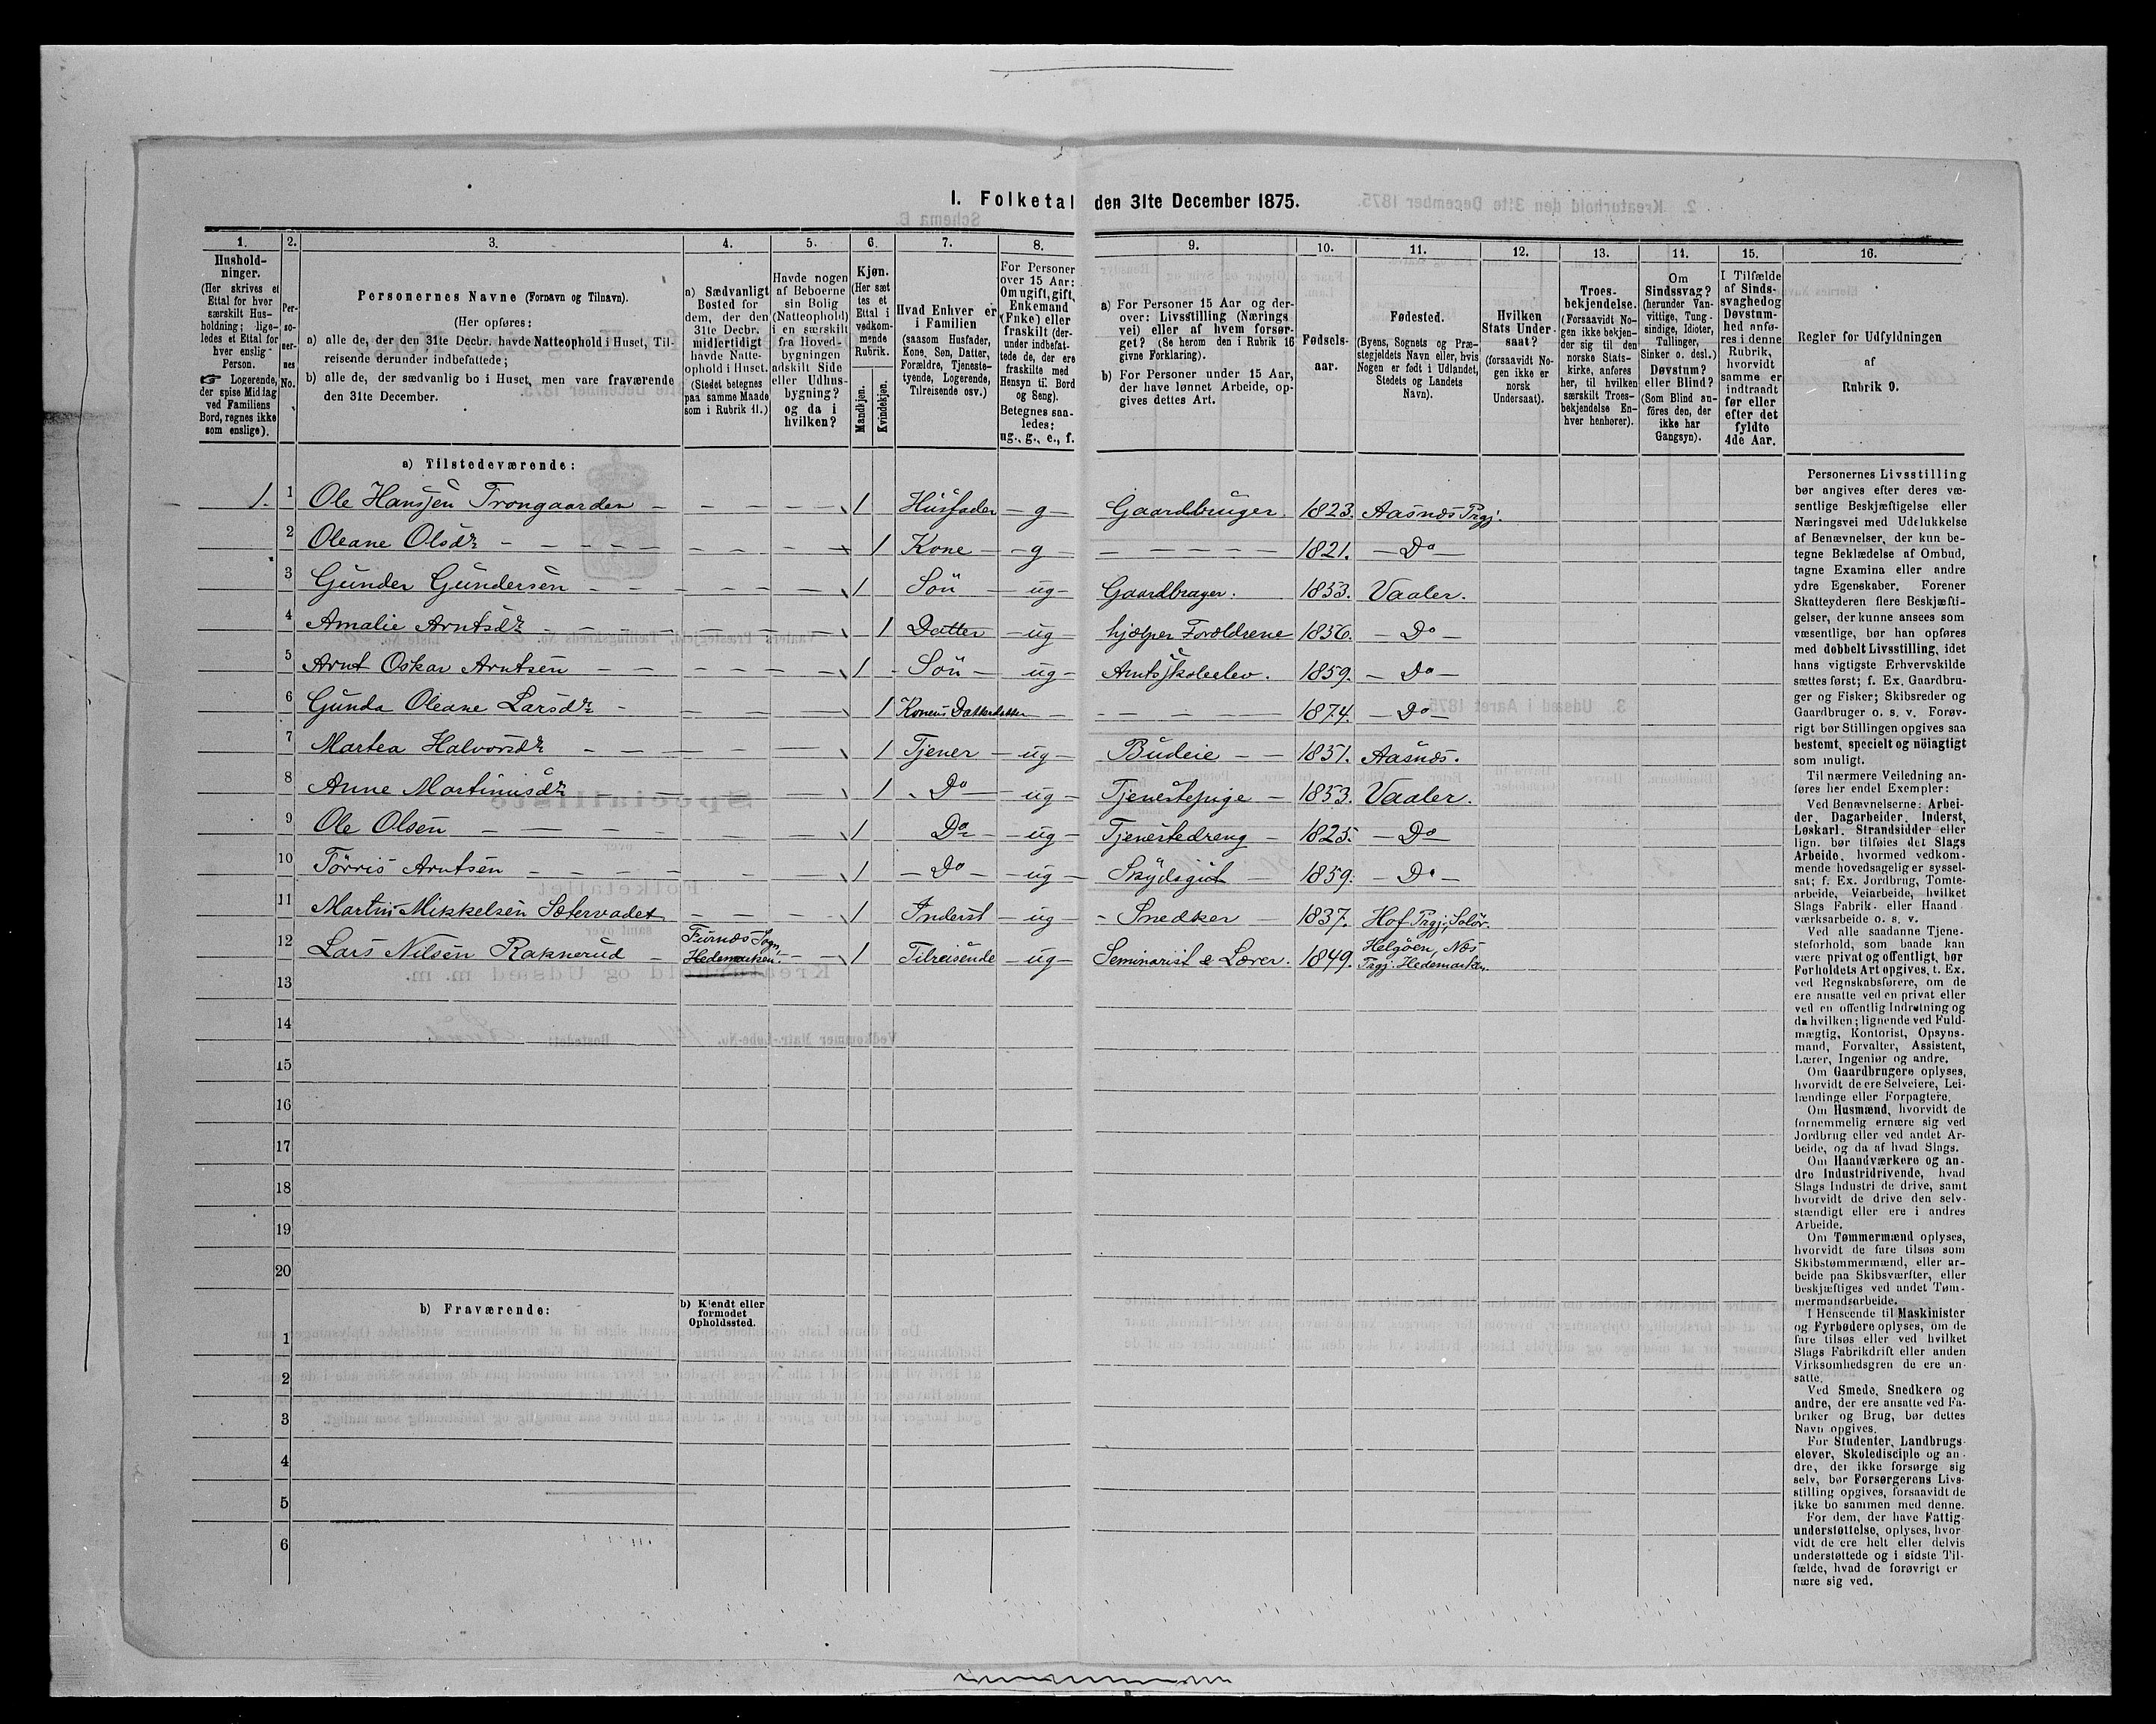 I. Folketal den 31te December 1875.
1. 2. 3. 4. 5. 6. 7. 8. 9. 10. 11. 12. 13. 14. 15. 16.
Hushold-
ninger.
(Her skrives et
Ettal for hver
særskilt Hus-
holdning; lige-
ledes et Ettal for
hver enslig
Person.
☞ Logerende,
der spise Middag
ved Familiens
Bord, regnes ikke
som enslige).
Per-
so-
ner-
nes
No.
Personernes Navne (Fornavn og Tilnavn).
(Her opføres:
a) alle de, der den 31te Decbr. havde Natteophold i Huset, Til-
reisende derunder indbefattede;
b) alle de, der sædvanlig bo i Huset, men vare fraværende
den 31te December.
a) Sædvanligt
Bosted for
dem, der den
31te Decbr.
midlertidigt
havde Natte-
ophold i Huset.
(Stedet betegnes
paa samme Maade
som i Rubrik 11.)
Havde nogen
af Beboerne
sin Bolig
(Natteophold)
i en særskilt
fra Hoved-
bygningen
adskilt Side
eller Udhus-
bygning?
og da i
hvilken?
Kjøn.
(Her sæt
tes et
Ettal i
vedkom-
mende
Rubrik.
Mandkjøn.
Kvindekjøn.
Hvad Enhver er
i Familien
(saasom Husfader,
Kone, Søn, Datter,
Forældre, Tjeneste-
tyende, Logerende,
Tilreisende osv.)
For Personer
over 15 Aar:
Om ugift, gift,
Enkemand
(Enke) eller
fraskilt (der-
under indbefat-
tede de, der ere
fraskilte med
Hensyn til Bord
og Seng).
Betegnes saa-
ledes:
ug., g., e., f.
a) For Personer 15 Aar og der-
over: Livsstilling (Nærings
vei) eller af hvem forsør-
get? (Se herom den i Rubrik 16
givne Forklaring).
b) For Personer under 15 Aar,
der have lønnet Arbeide, op-
gives dettes Art.
Fødsels-
aar.
Fødested.
(Byens, Sognets og Præ-
stegjeldets Navn eller, hvis
Nogen er født i Udlandet,
Stedets og Landets
Navn).
Hvilken
Stats Under-
saat?
(forsaavidt No-
gen ikke er
norsk
Undersaat).
Troes-
bekjendelse.
(Forsaavidt No-
gen ikke bekjen-
der sig til den
norske Stats-
kirke, anføres
her, til hvilken
særskilt Troes-
bekjendelse En-
hver henhører).
Om
Sindssvag?
(herunder Van-
vittige, Tung-
sindige, Idioter,
Tullinger,
Sinker o. desl.)
Døvstum?
eller Blind?
(Som Blind an-
føres den, der
ikke har
Gangsyn).
I Tilfælde
af Sinds-
svaghed og
Døvstum-
hed anfø-
res i denne
Rubrik,
hvorvidt
samme er
indtraadt
før eller
efter det
fyldte
4de Aar.
Regler for Udfyldningen
af
Rubrik 9.
a) Tilstedeværende:
1. 1 Ole Hansen Trongaarden 1 Husfader g Gaardbruger. 1823. Aasnæs Prgj.
2 Oleane Olsdr 1 Kone g 1821. Do
3 Gunder Gundersen 1 Søn ug Gaardbruger. 1853. Vaaler.
4 Amalie Arntsdr 1 Datter ug hjælper Forældrene 1856. Do
5 Arnt Oskar Arntsen 1 Søn ug Amtsskoleelev. 1859. Do
6 Gunda Oleane Larsdr 1 Konens Datterdatter 1874. Do
7 Martea Halvorsdr 1 Tjener ug Budeie 1851. Aasnæs.
8 Anne Martinusdr 1 Do ug Tjenestepige 1853. Vaaler.
9 Ole Olsen 1 Do ug Tjenestedreng 1825. Do
10 Tørris Arntsen 1 Do ug Skydsgut 1859. Do
11 Martin Mikkelsen Sætervadet 1 Inderst ug Snedker 1837. Hof Prgj. Solør.
12 Lars Nilsen Raknerud Furnæs Sogn, Hedemarken 1 Tilreisende ug Seminarist & Lærer. 1849. Helgøen, Næs Prgj. Hedemarken.
13
14
15
16
17
18
19
20
b) Fraværende:
b) Kjendt eller
formodet
Opholdssted.
1
2
3
4
5
6
Personernes Livsstilling
bør angives efter deres væ-
sentlige Beskjæftigelse eller
Næringsvei med Udelukkelse
af Benævnelser, der kun be-
tegne Beklædelse af Ombud,
tagne Examina eller andre
ydre Egenskaber. Forener
Skatteyderen flere Beskjæfti-
gelser, der kunne ansees som
væsentlige, bør han opføres
med dobbelt Livsstilling, idet
hans vigtigste Erhvervskilde
sættes først; f. Ex. Gaardbru-
ger og Fisker; Skibsreder og
Gaardbruger o. s. v. Forøv-
rigt bør Stillingen opgives saa
bestemt, specielt og nøiagtigt
som muligt.
Til nærmere Veiledning an-
føres her endel Exempler:
Ved Benævnelserne: Arbei-
der, Dagarbeider, Inderst,
Løskarl, Strandsidder eller
lign. bør tilføies det Slags
Arbeide, hvormed vedkom-
mende hovedsagelig er syssel-
sat; f. Ex. Jordbrug, Tomte-
arbeide, Veiarbeide, hvilket
Slags Fabrik- eller Haand
værksarbeide o. s. v.
Ved alle saadanne Tjene-
steforhold, som baade kan
være privat og offentligt, bør
Forholdets Art opgives, t. Ex.
ved Regnskabsførere, om de
ere ansatte ved en privat eller
ved en offentlig Indretning og
da hvilken; lignende ved Fuld-
mægtig, Kontorist, Opsyns-
mand, Forvalter, Assistent,
Lærer, Ingeniør og andre.
Om Gaardbrugere oplyses,
hvorvidt de ere Selveiere, Lei-
lændinge eller Forpagtere.
Om Husmænd, hvorvidt de
fornemmelig ernære sig ved
Jordbrug eller ved andet Ar-
beide, og da af hvad Slags.
Om Haandværkere og an-
dre Industridrivende, hvad
Slags Industri de drive, samt
hvorvidt de drive den selv-
stændigt eller ere i andres
Arbeide.
Om Tømmermænd oplyses,
hvorvidt de fare tilsøs som
Skibstømmermænd, eller ar-
beide paa Skibsværfter, eller
beskjæftiges ved andet Tøm-
mermandsarbeide.
I Henseende til Maskinister
og Fyrbødere oplyses, om de
fare tilsøs eller ved hvilket
Slags Fabrikdrift eller anden
Virksomhedsgren de ere an-
satte.
Ved Smede, Snedkere og
andre, der ere ansatte ved Fa-
briker og Brug, bør dettes
Navn opgives.
For Studenter, Landbrugs-
elever, Skoledisciple og an-
dre, der ikke forsørge sig
selv, bør Forsørgerens Livs-
stilling opgives, forsaavidt de
ikke bo sammen med denne.
For dem, der have Fattig-
understøttelse, oplyses, hvor-
vidt de ere helt eller delvis
understøttede og i sidste Til-
fælde, hvad de forøvrigt er
nære sig ved.